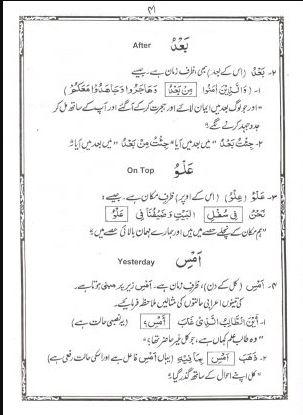 After
بَعْدُ
۲- بَعْدُ (اس کے بعد) بھی ظرفِ زمان ہے۔ جیسے
۱- (وَالَّذِیْنَ اٰمَنُوْا مِنْ بَعْدُ وَهَاجَرُوْا وَجَاهَدُوْا مَعَكُمْ)
”اور جو لوگ بعد میں ایمان لائے اور ہجرت کر کے آ گئے اور آپ کے ساتھ مل کر
جدوجہد کرنے لگے“
۲- جِئْتُ بَعْدُ ”میں بعد میں آیا“ جِئْتُ مِنْ بَعْدُ ”میں بعد میں آیا“
On Top
عَلْوُ
۳- عَلْوُ (عِلْوُ) (اس کے اوپر) ظرفِ مکان ہے۔ جیسے:
نَحْنُ فِي سُفْلِ الْبَيْتِ وَضُيُوْفُنَا فِي عَلْوُ
”ہم مکان کے نچلے حصے میں ہیں اور ہمارے مہمان بالائی حصے میں“
Yesterday
اَمْسِ
۴- اَمْسِ (کل کے دن)، ظرفِ زمان ہے۔ اَمْسِ زیر پر مبنی ہوتا ہے۔
کی تینوں اعرابی حالتوں کی مثالیں ملاحظہ فرمائیے۔
۱- اَيْنَ الطَّالِبُ الَّذِيْ غَابَ اَمْسِ؟ (یہ نصبی حالت ہے)
”وہ طالب علم کہاں ہے، جو کل غیر حاضر تھا؟“
۲- ذَهَبَ اَمْسِ بِمَا فِيْهِ (یہاں اَمْسِ فاعل ہے اور اسکی حالت رفعی ہے)
”کل اپنے احوال کے ساتھ گذر گیا“